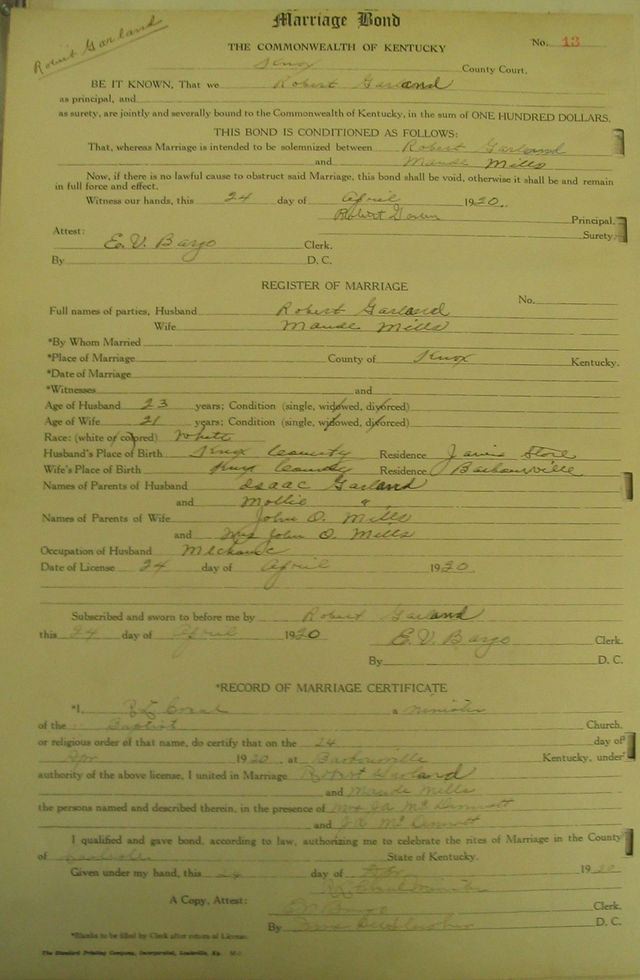 Robert Garland
Marriage Bond
THE COMMONWEALTH OF KENTUCKY No. 13
Knox County Court.
BE IT KNOWN, That we Robert Garland
as principal, and
as surety, are jointly and severally bound to the Commonwealth of Kentucky, in the sum of ONE HUNDRED DOLLARS.
THIS BOND IS CONDITIONED AS FOLLOWS:
That, whereas Marriage is intended to be solemnized between Robert Garland
and Maude Mills
Now, if there is no lawful cause to obstruct said Marriage, this bond shall be void, otherwise it shall be and remain
in full force and effect.
Witness our hands, this 24 day of April 1920.
Robert Principal.
Surety.
Attest:
E. V. Bargo Clerk.
By D. C.
REGISTER OF MARRIAGE
No.
Full names of parties, Husband Robert Garland
Wife Maude Mills
*By Whom Married
*Place of Marriage County of Knox Kentucky.
*Date of Marriage
*Witnesses and
Age of Husband 23 years; Condition (single, widowed, divorced)
Age of Wife 21 years; Condition (single, widowed, divorced)
Race: (white of colored) White
Husband's Place of Birth Knox County Residence Jarvis Store
Wife's Place of Birth Knox County Residence Barbourville
Names of Parents of Husband Isaac Garland
and Mollie "
Names of Parents of Wife John O. Mills
and Mrs John O. Mills
Occupation of Husband Mechanic
Date of License 24 day of April 1920
Subscribed and sworn to before me by Robert Garland
this 24 day of April 1920 E. V. Bargo Clerk.
By D. C.
*RECORD OF MARRIAGE CERTIFICATE
*I, a Minister
of the Baptist Church.
or religious order of that name, do certify that on the 24 day of
Apr 1920 at Barbourville Kentucky, under
authority of the above license, I united in Marriage Robert Garland
and Maude Mills
the persons named and described therein, in the presence of Mrs J A McDermott
and J A McDermott
I qualified and gave bond, according to law, authorizing me to celebrate the rites of Marriage in the County
of State of Kentucky.
Given under my hand, this 24 day of Apr 1920
Minister
A Copy, Attest: Clerk.
By D. C.
*Blanks to be filled by Clerk after return of License.
The Standard Printing Company, Incorporated, Louisville, Ky.